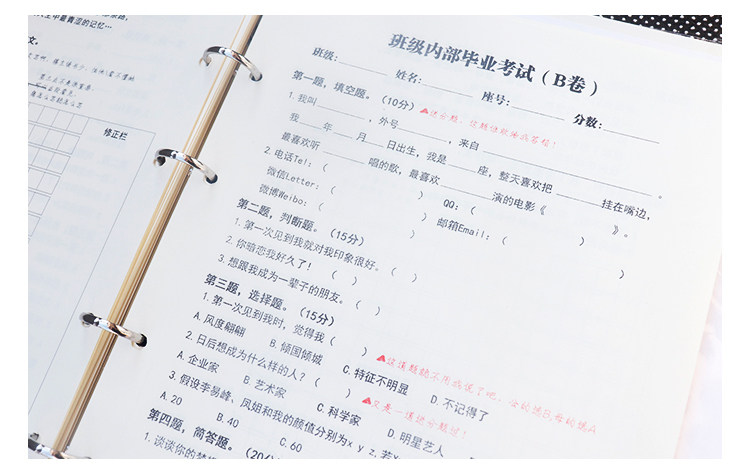 生中最青涩的记忆…
修正栏
班级内部毕业考试（B卷）
班级：________ 姓名：________ 座号：________ 分数：________
第一题，填空题。（10分）
1.我叫________，外号________，来自________。
我____年____月____日出生，我是____座，整天喜欢把________挂在嘴边，
最喜欢听________唱的歌，最喜欢________演的电影《 》。
2.电话Tel：（ ） QQ：（ ）
微信Letter：（ ） 邮箱Email：（ ）
微博Weibo：（ ）
第二题，判断题。（15分）
1.第一次见到我就对我印象很好。（ ）
2.你暗恋我好久了！（ ）
3.想跟我成为一辈子的朋友。（ ）
第三题，选择题。（15分）
1.第一次见到我时，觉得我（ ）
A.风度翩翩 B.倾国倾城 C.特征不明显 D.不记得了
2.日后想成为什么样的人？（ ）
▲又是一道送分题过！
A.企业家 B.艺术家 C.科学家 D.明星艺人
3.假设李易峰、凤姐和我的颜值分别为x y z，若x
A.20 B.40 C.60
第四题，简答题。（20分
1.谈谈你的梦